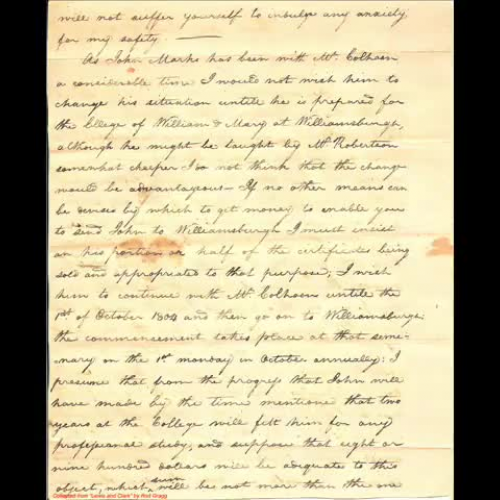 will not suffer yourself to indulge any anxiety
for my safety. ——
As John Marks has been with Mr. Colhoon
a considerable time I would not wish him to
change his situation untile he is prepared for
the College of William & Mary at Williamsburgh,
although he might be taught by Mr. Robertson
somewhat cheeper I do not think that the change
would be advantagous— If no other means can
be devised by which to get money to enable you
to send John to Williamsburgh I must insist
on his portion or half of the certificates being
sold and appropriated to that purpose; I wish
him to continue with Mr. Colhoon untile the
1st of October 1804 and then go on to Williamsburgh
the commencement takes place at that semi-
nary on the 1st monday in October annually: I
presume that from the progress that John will
have made by the time mentioned that two
years at the College will fitt him for any
professional study, and suppose that eight or
nine hundred dollars will be adequate to this
object, which sum will be not more than the one
Collected from "Lewis and Clark" by Rod Gragg